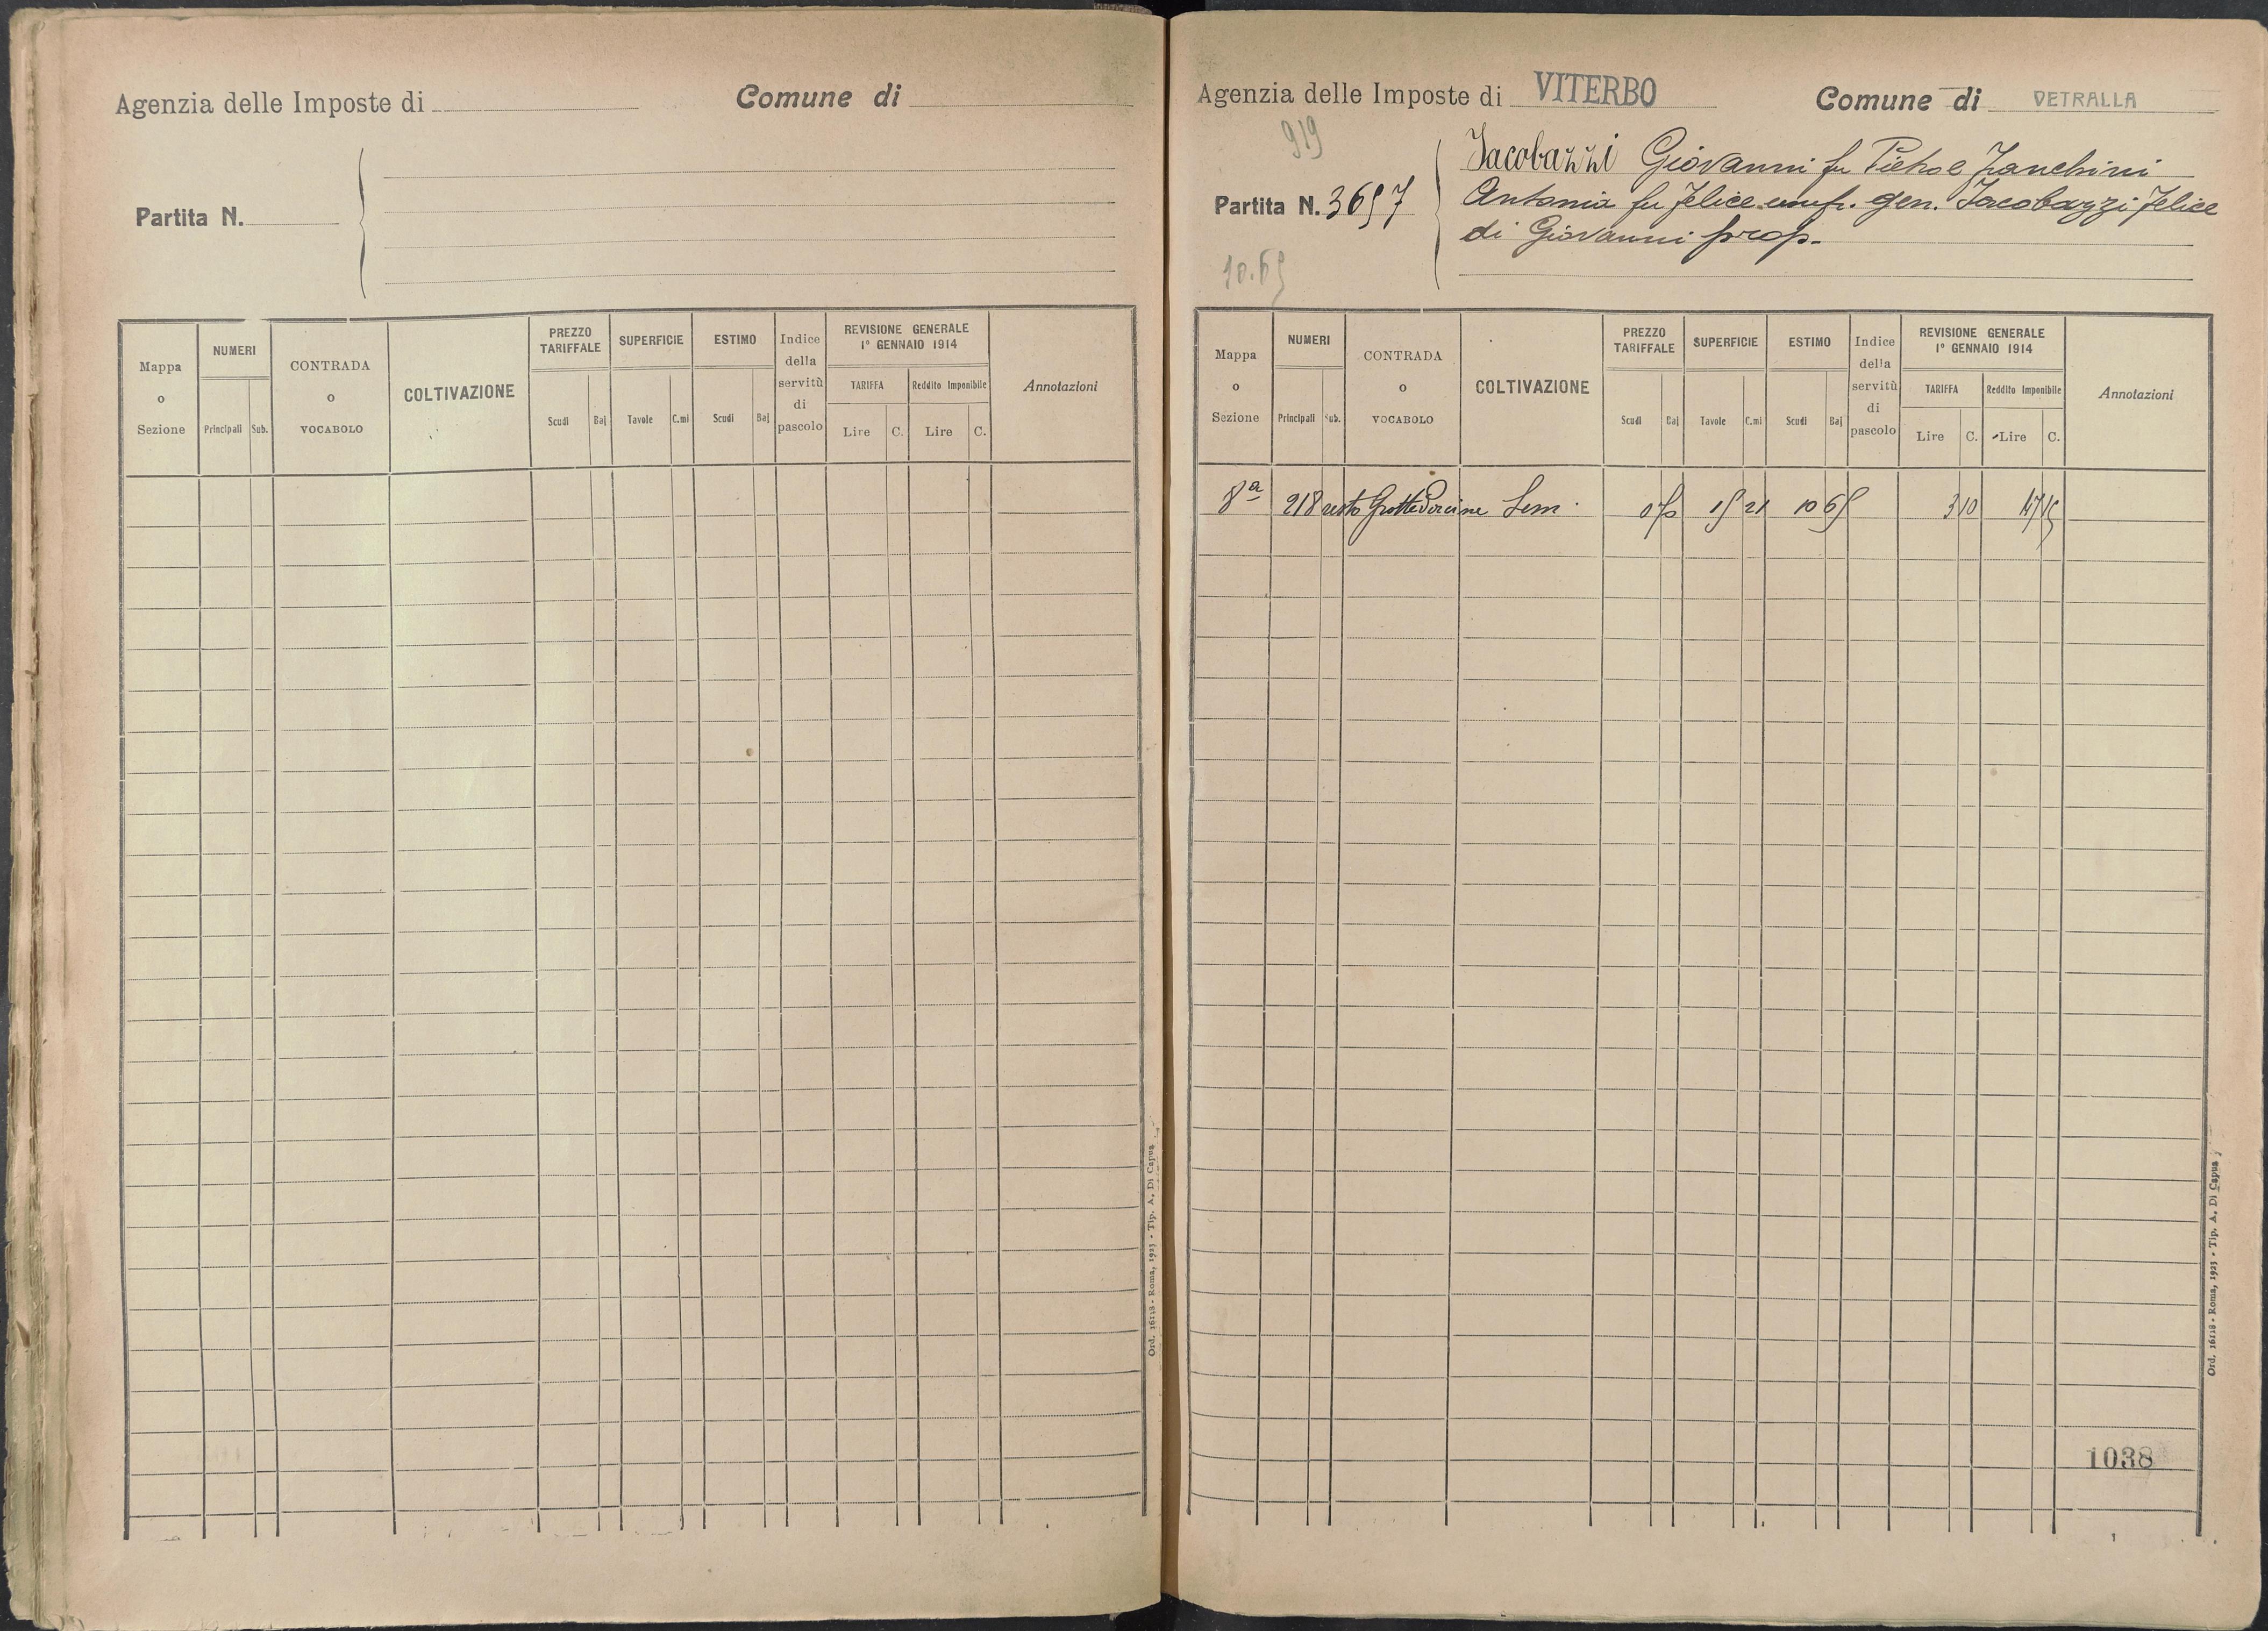 Agenzia delle Imposte di
Comune di
Partita N.
Mappa o Sezione
NUMERI
Principali Sub.
CONTRADA o VOCABOLO
COLTIVAZIONE
PREZZO TARIFFALE
Scudi Baj
SUPERFICIE
Tavole C.mi
ESTIMO
Scudi Baj
Indice della servitù di pascolo
REVISIONE GENERALE
1° GENNAIO 1914
TARIFFA Reddito Imponibile
Lire C. Lire C.
Annotazioni
Ord. 16118 - Roma, 1923 - Tip. A. Di Capua
Agenzia delle Imposte di VITERBO
Comune di VETRALLA
919
Partita N. 3657
10.65
Jacobazzi Giovanni fu Pietro e Zanchini
Antonia fu Felice usuf. gen. Jacobazzi Felice
di Giovanni prop.
Mappa o Sezione
NUMERI
Principali Sub.
CONTRADA o VOCABOLO
COLTIVAZIONE
PREZZO TARIFFALE
Scudi Baj
SUPERFICIE
Tavole C.mi
ESTIMO
Scudi Baj
Indice della servitù di pascolo
REVISIONE GENERALE
1° GENNAIO 1914
TARIFFA Reddito Imponibile
Lire C. Lire C.
Annotazioni
8ª 218 resto Grotte Porcine Sem. 15 21 10 65 3 10 47 15
1038
Ord. 16118 - Roma, 1923 - Tip. A. Di Capua